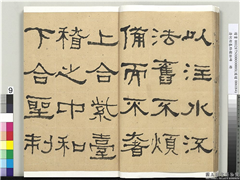 以注水流
法舊不煩
備而不奢
上合紫臺
稽之中和
下合聖制
9